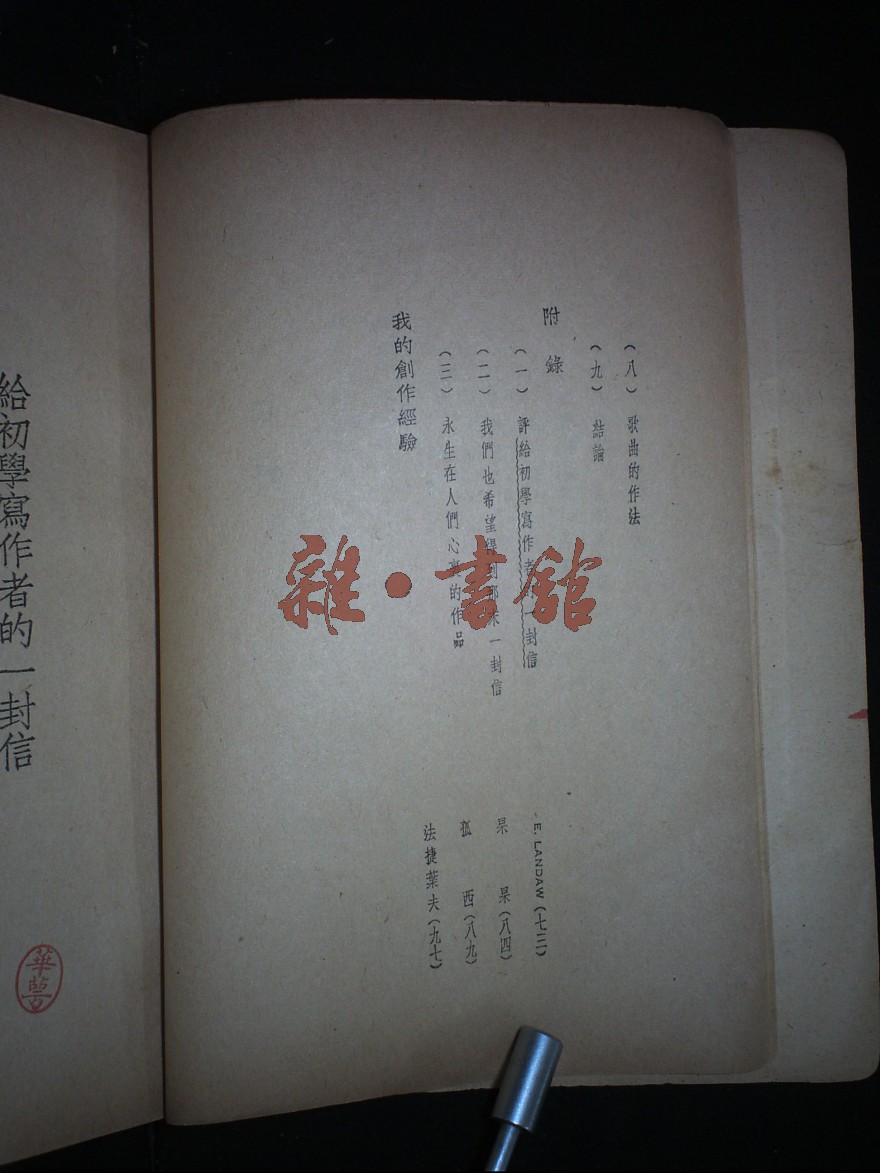 (八) 歌曲的作法
(九) 結論
附錄
(一) 評給初學寫作者 一封信 E. LANDAW (七三)
(二) 我們也希望得到那末一封信 杲杲 (八四)
(三) 永生在人們心裏的作品 狐西 (八九)
我的創作經驗 法捷葉夫 (九七)
給初學寫作者的一封信
雜·書館